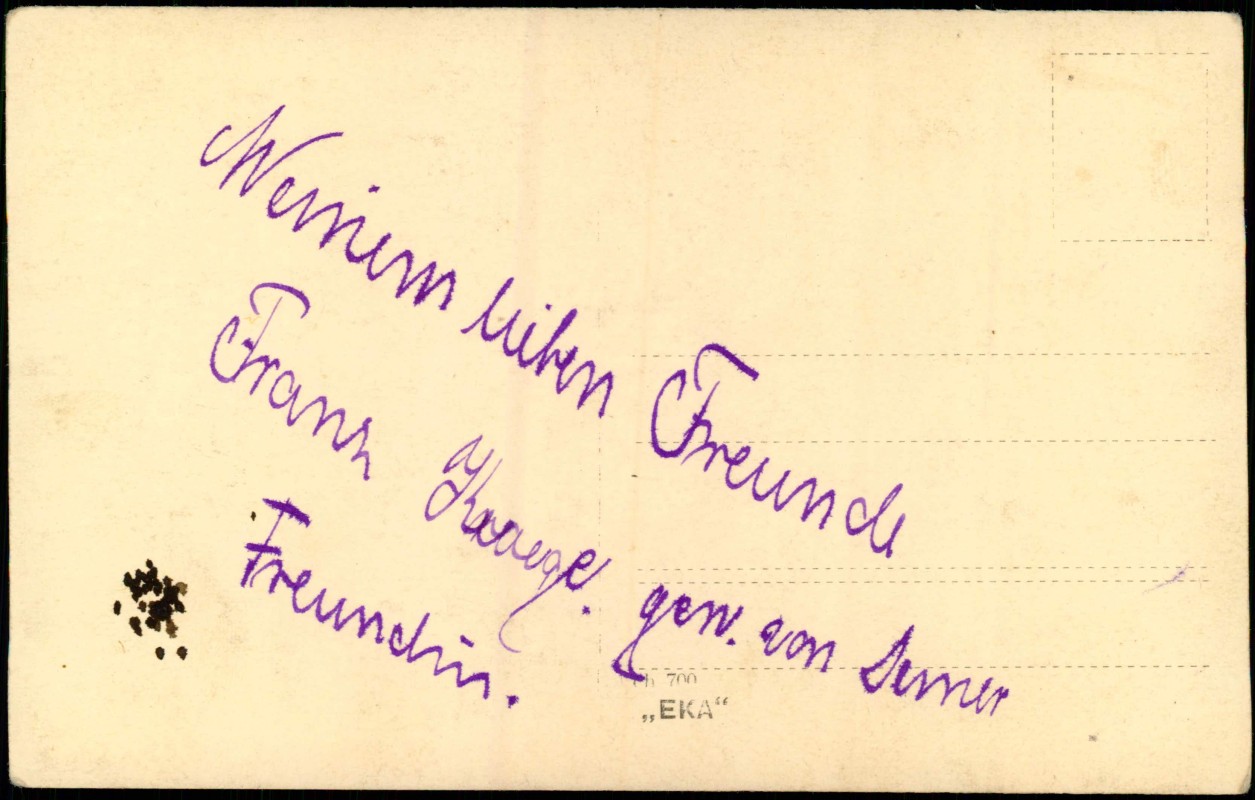 Meinem lieben Freunde
Franz gew. von Deiner
Freundin.
700
„EKA“